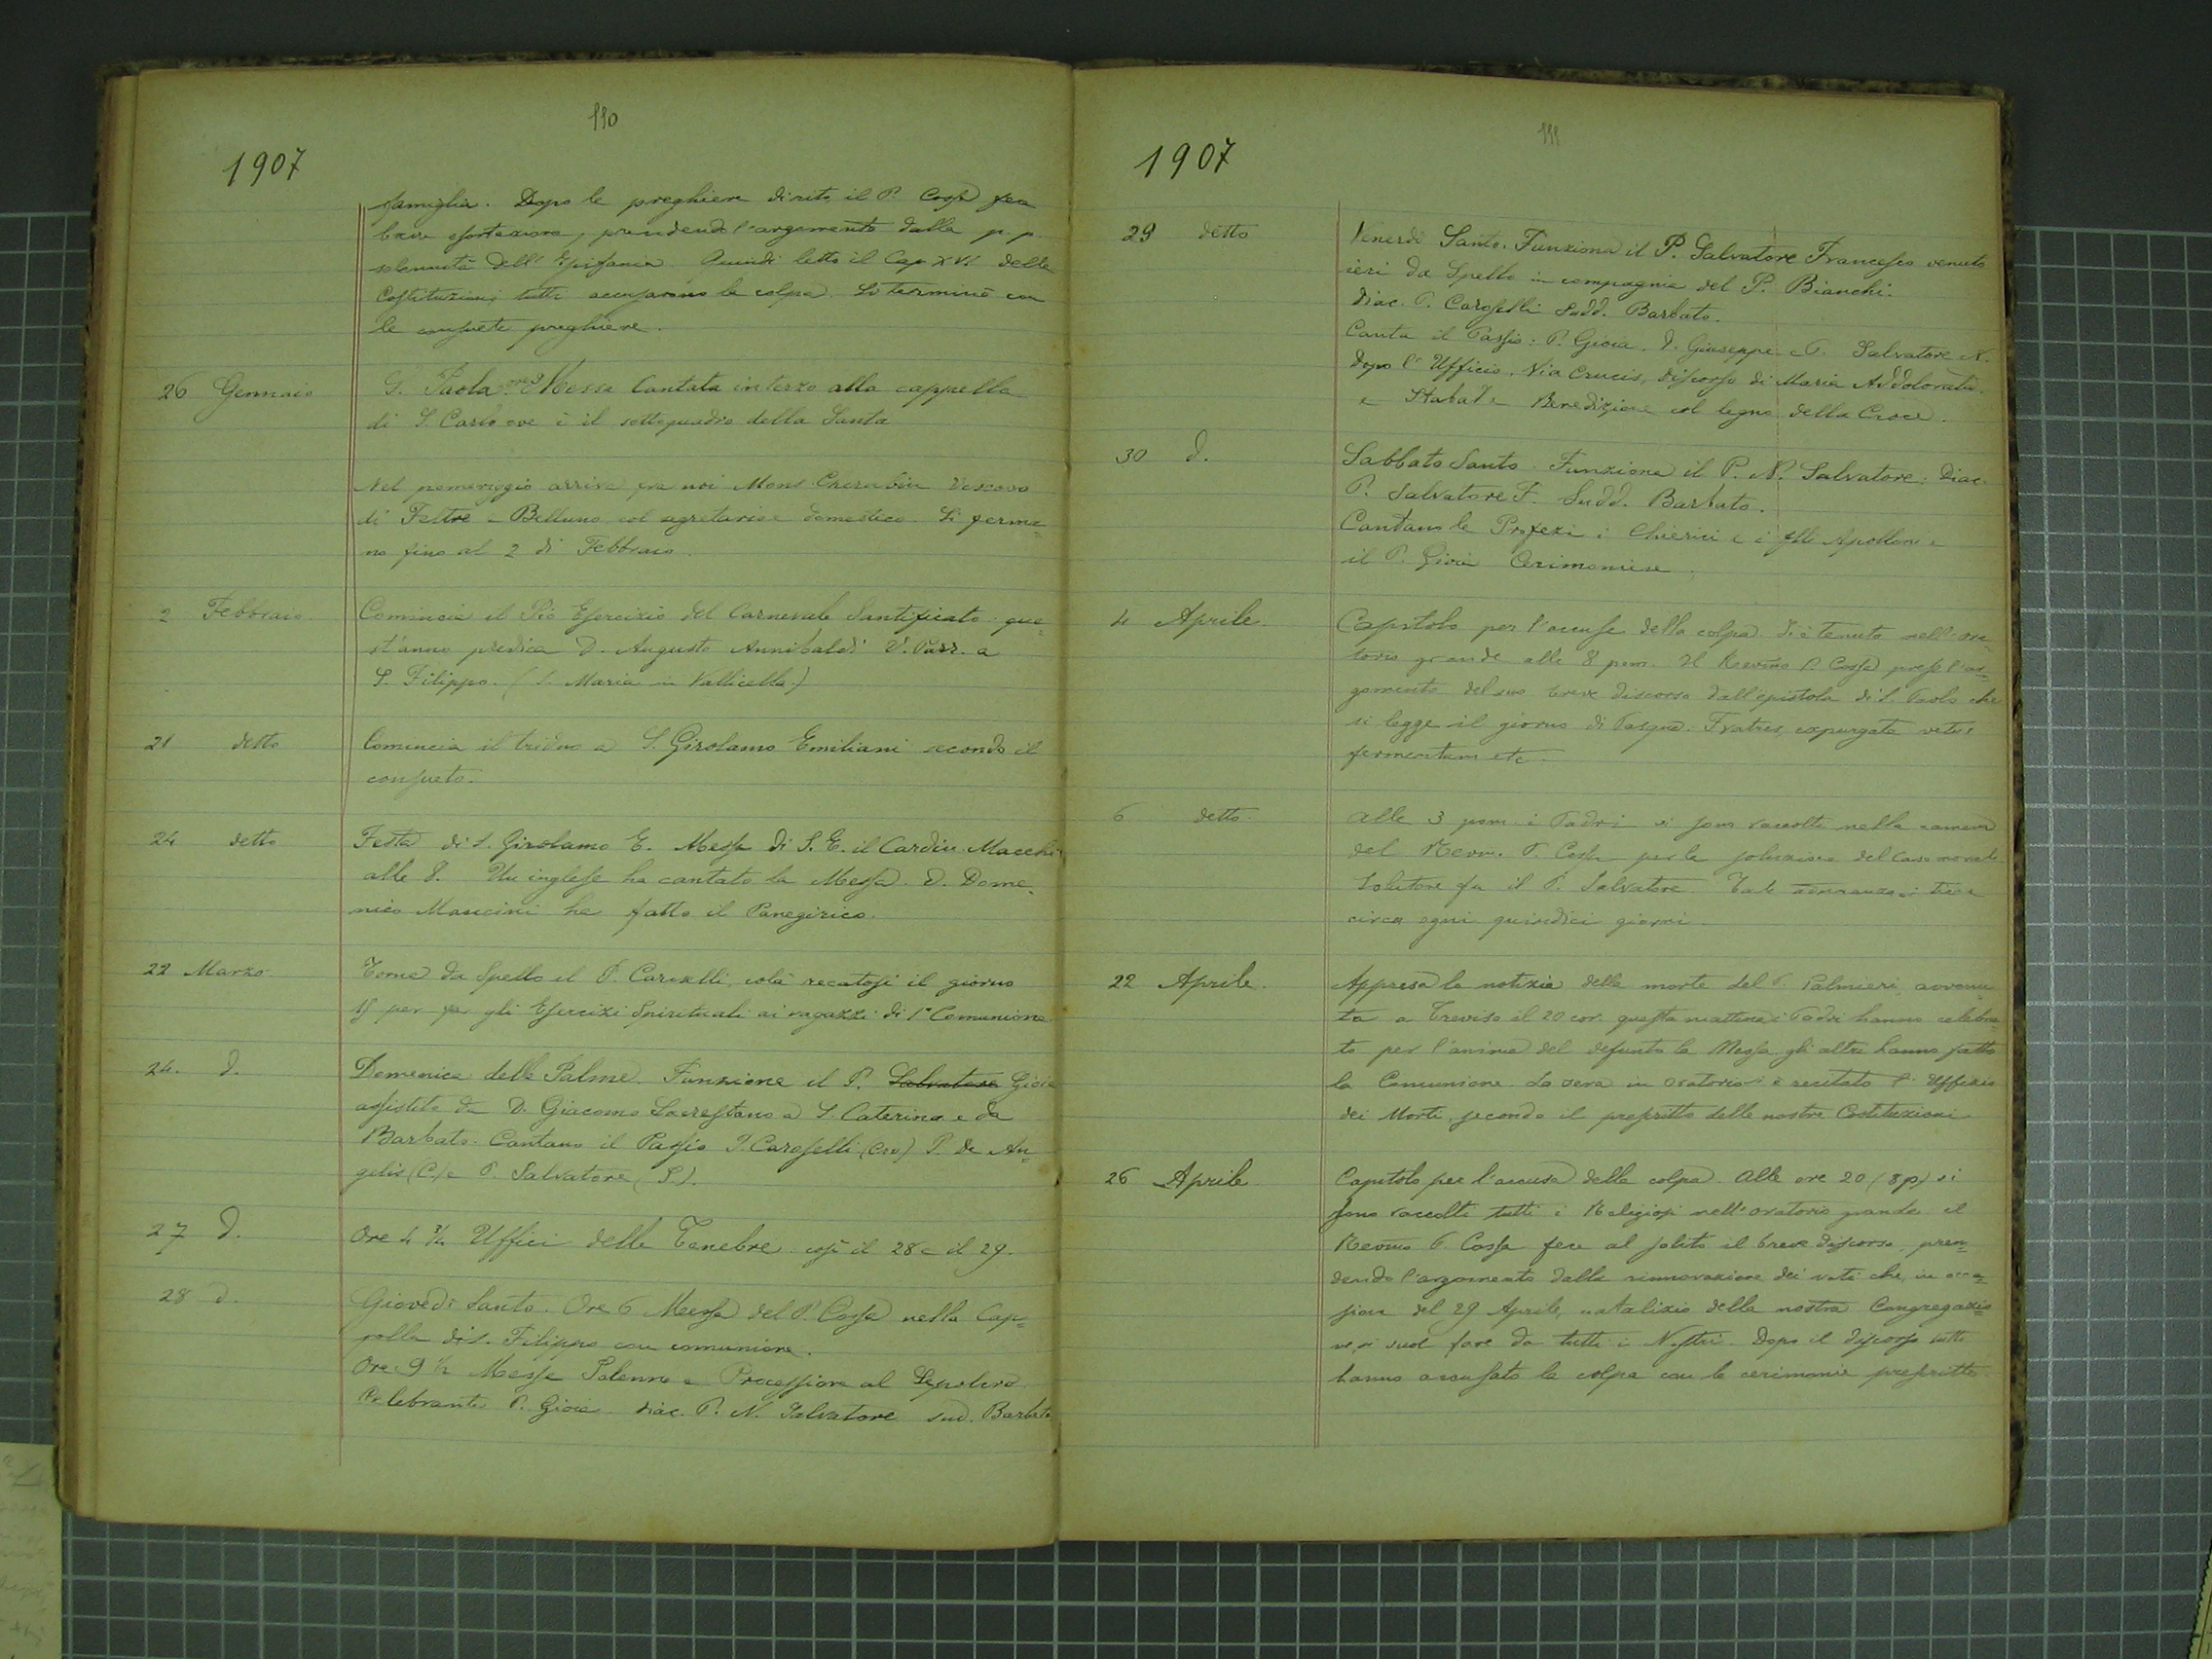 110
1907
famiglia. Dopo le preghiere di rito il P. Cossa fece
breve esortazione, prendendo l'argomento dalla p. p.
solennità dell'Epifania. Quindi letto il Cap XVI delle
Costituzioni tutti accusarono la colpa. Si terminò con
le consuete preghiere.
26 Gennaio S. Paola. ore 9 Messa Cantata in terzo alla cappella
di S. Carlo ove è il sottoquadro della Santa
Nel pomeriggio arriva fra noi Mons Cherubin Vescovo
di Feltre e Belluno col segretario e domestico. Si ferma=
no fino al 2 di Febbraio.
2 Febbraio Comincia il Pio Esercizio del Carnevale Santificato: que=
st'anno predica D. Augusto Annibaldi V. Parr. a
S. Filippo. (S. Maria in Vallicella.)
21 detto Comincia il triduo a S. Girolamo Emiliani secondo il
consueto.
24 detto Festa di S. Girolamo E. Messa di S. E. il Cardin. Macchi
alle 8. Un inglese ha cantato la Messa. D. Dome=
nico Mancini ha fatto il Panegirico.
22 Marzo Torna da Spello il P. Caroselli, colà recatosi il giorno
15 per far gli Esercizi Spirituali ai ragazzi di 1ª Comunione
24. d. Domenica delle Palme. Funzione il P. Salvatore Gioia
assistito da D. Giacomo Sacrestano a S. Caterina e da
Barbato. Cantano il Passio P. Caroselli (Cro) P. De An=
gelis (C.) e P. Salvatore (S.).
27 d. Ore 4 3/4 Uffici delle Tenebre così il 28 e il 29.
28 d. Giovedì Santo. Ore 6 Messa del P. Cossa nella Cap=
pella di S. Filippo con comunione.
Ore 9 1/2 Messa Solenne e Processione al Sepolcro
Celebrante P. Gioia diac. P. N. Salvatore sud. Barbato
111
1907
29 detto Venerdì Santo. Funziona il P. Salvatore Francesco venuto
ieri da Spello in compagnia del P. Bianchi.
Diac. P. Caroselli Sudd. Barbato.
Canta il Passio: P. Gioia. D. Giuseppe e P. Salvatore N.
Dopo l'Ufficio, Via Crucis, discorso di Maria Addolorata.
e Stabat e Benedizione col legno della Croce.
30 d. Sabbato Santo. Funziona il P. N. Salvatore: Diac.
P. Salvatore F. Sudd. Barbato.
Cantano le Profezie i Chierici e i flli Apolloni e
il P. Gioia Cerimoniere.
4 Aprile. Capitolo per l'accusa della colpa. Si è tenuto nell'ora=
torio grande alle 8 pom. Il Revmo P. Cossa prese l'ar=
gomento del suo breve discorso dall'epistola di S. Paolo che
si legge il giorno di Pasqua. Fratres, expurgate vetus
fermentum etc.
6 detto. Alle 3 pom. i Padri si sono raccolti nella camera
del Revm. P. Cossa per la soluzione del Caso morale.
Solutore fu il P. Salvatore. Tale si tiene
circa ogni quindici giorni.
22 Aprile. Appresa la notizia della morte del P. Palmieri, avvenu=
ta a Treviso il 20 cor. questa mattina i Padri hanno celebra=
to per l'anima del defunto la Messa gli altri hanno fatto
la Comunione. La sera in oratorio si è recitato l'Uffizio
dei Morti, secondo il prescritto delle nostre Costituzioni
26 Aprile Capitolo per l'accusa della colpa. Alle ore 20 (8 p) si
sono raccolti tutti i Religiosi nell'oratorio grande. Il
Revmo P. Cossa fece al solito il breve discorso, pren=
dendo l'argomento dalla rinnovazione dei voti che, in occa=
sione del 29 Aprile, natalizio della nostra Congregazio
ne, si suol fare da tutti i Nostri. Dopo il discorso tutti
hanno accusato la colpa con le cerimonie prescritte.